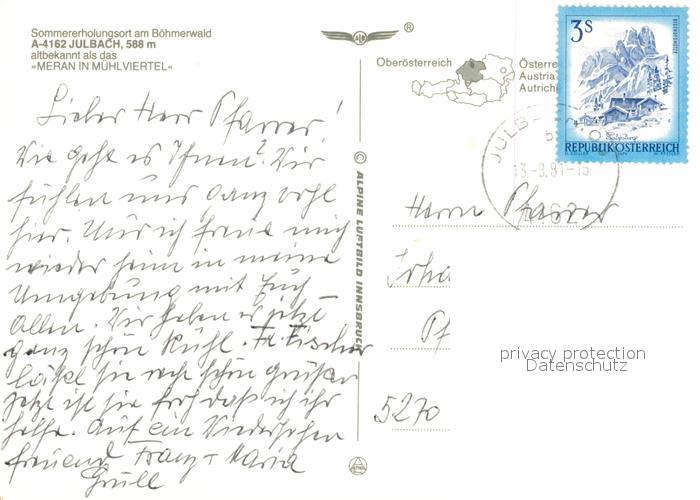 Sommererholungsort am Böhmerwald
A-4162 JULBACH, 588 m
altbekannt als das
»MERAN IN MÜHLVIERTEL«
®
Oberösterreich
Österre
Austria
Autrich
3S
Salzburg
REPUBLIK ÖSTERREICH
JULBACH
13-9.81-16
4162
© ALPINE LUFTBILD INNSBRUCK
Lieber Herr Pfarrer!
Wie geht es Ihnen? Wir
fühlen uns ganz wohl
hier. Nur ich freue mich
wieder heim in meine
Umgebung mit Euch
Allen. Wir haben es jetzt
ganz schön kühl. Fr. Fischer
läßt sie recht schön grüßen
jetzt ist sie froh daß ich ihr
helfe. Auf ein Wiedersehen
freuend Franz + Maria
Grill
Herrn Pfarrer
Joha
Pf
5270
privacy protection
Datenschutz